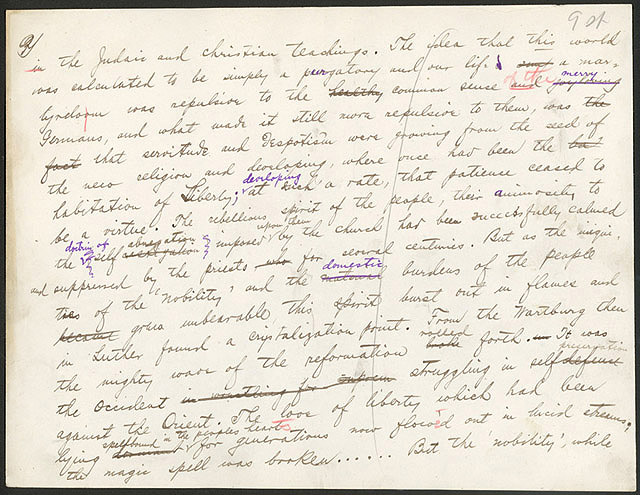 9 st
2)
in the Judaic and christian teachings. The idea that this world
was calculated to be simply a purgatory and our life a mar-
tyrdom was repulsive to the healthy common sense of the merry
Germans, and what made it still more repulsive to them, was the
fact that servitude and despotism were growing from the seed of
the new religion and developing, where once had been the
habitation of Liberty; developing at such a rate, that patience ceased to
be a virtue. The rebellious spirit of the people, their animosity to
the doctrine of self abnegation imposed upon them by the church had been successfully calmed
and suppressed by the priests who for several centuries. But as the
of the "Nobility" and the domestic burdens of the people
became grew unbearable this spirit burst out in flames and
in Luther found a crystalization point. From the Wartburg then
the mighty wave of the reformation rolled forth. It was
the Occident in wrestling for struggling in self preservation defense
against the Orient. The love of liberty which had been
lying spellbound in the peoples hearts for generations now flowed out in lucid streams;
the magic spell was broken...... But the 'nobility', while